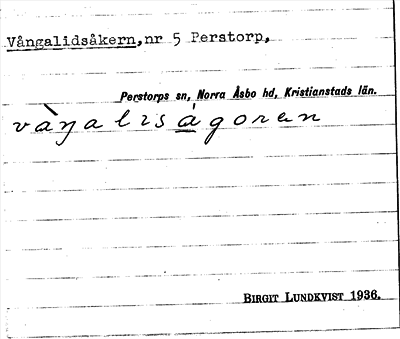 Vångalidsåkern, nr 5 Perstorp,
Perstorps sn, Norra Åsbo hd, Kristianstads län.
vàŋalisá̱goren
BIRGIT LUNDKVIST 1936.